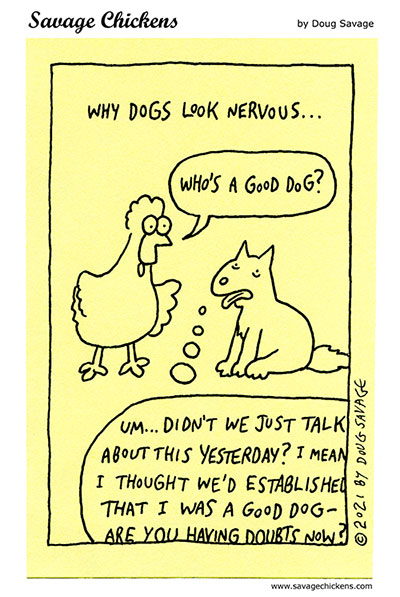 Savage Chickens
by Doug Savage
WHY DOGS LOOK NERVOUS...
WHO'S A GOOD DOG?
UM... DIDN'T WE JUST TALK
ABOUT THIS YESTERDAY? I MEAN
I THOUGHT WE'D ESTABLISHED
THAT I WAS A GOOD DOG-
ARE YOU HAVING DOUBTS NOW?
©2021 BY DOUG SAVAGE
www.savagechickens.com